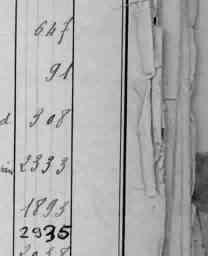 647
91
d 308
2333
1893
2935